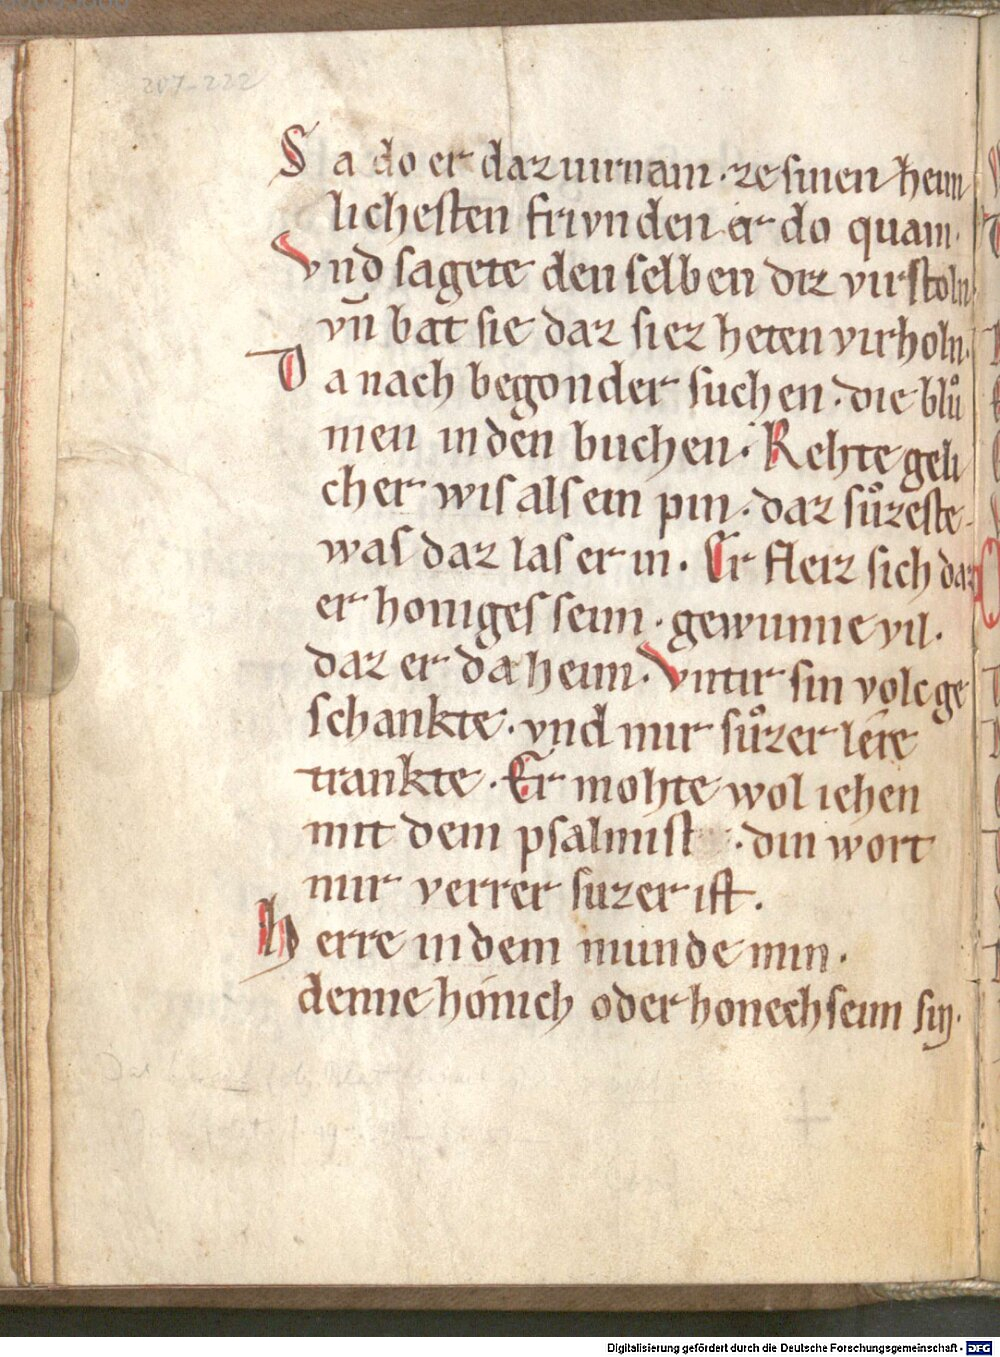 207-222
Sa do er daz uirnam · ze sinen heim
lichesten frivnden er do quam·
Vnd sagete den selben diz virstoln
vn̄ bat sie daz siez heten virholn·
Danach begonder suchen · die blůͦ
men in den buchen · Rehte geli
cher wis als ein pin · daz sůzeste
was daz las er in · Er fleiz sich daz
er honiges seim · gewunne vil ·
daz er da heim · Vntir sin volc ge
schankte · vnd mir sůzer lere
trankte · Er mohte wol iehen
mit dem psalmist · din wort
mir verrer suzer ist ·
Herre in dem munde min ·
denne hónich oder honechseim sin·
Digitalisierung gefördert durch die Deutsche Forschungsgemeinschaft - DFG